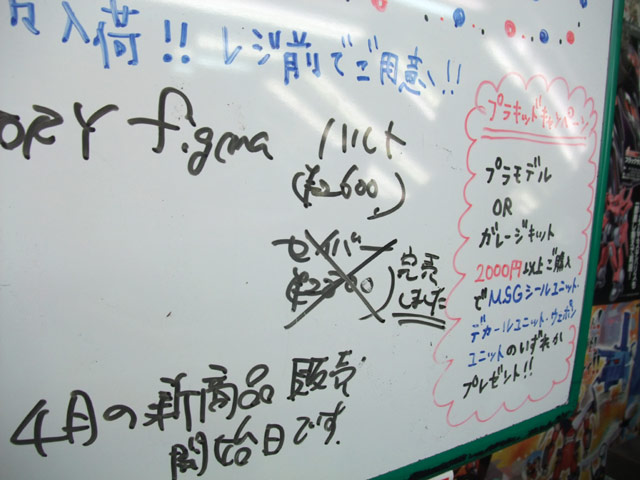 入荷!! レジ前でご用意!!
ORY figma ハルヒ
(¥2600)
セイバー
完売
しました
4月の新商品 販売
開始日です
プラキットキャンペーン
プラモデル
OR
ガレージキット
2000円以上ご購入
でM.S.Gシールユニット・
デカールユニット・ウェポン
ユニットのいずれか
プレゼント!!